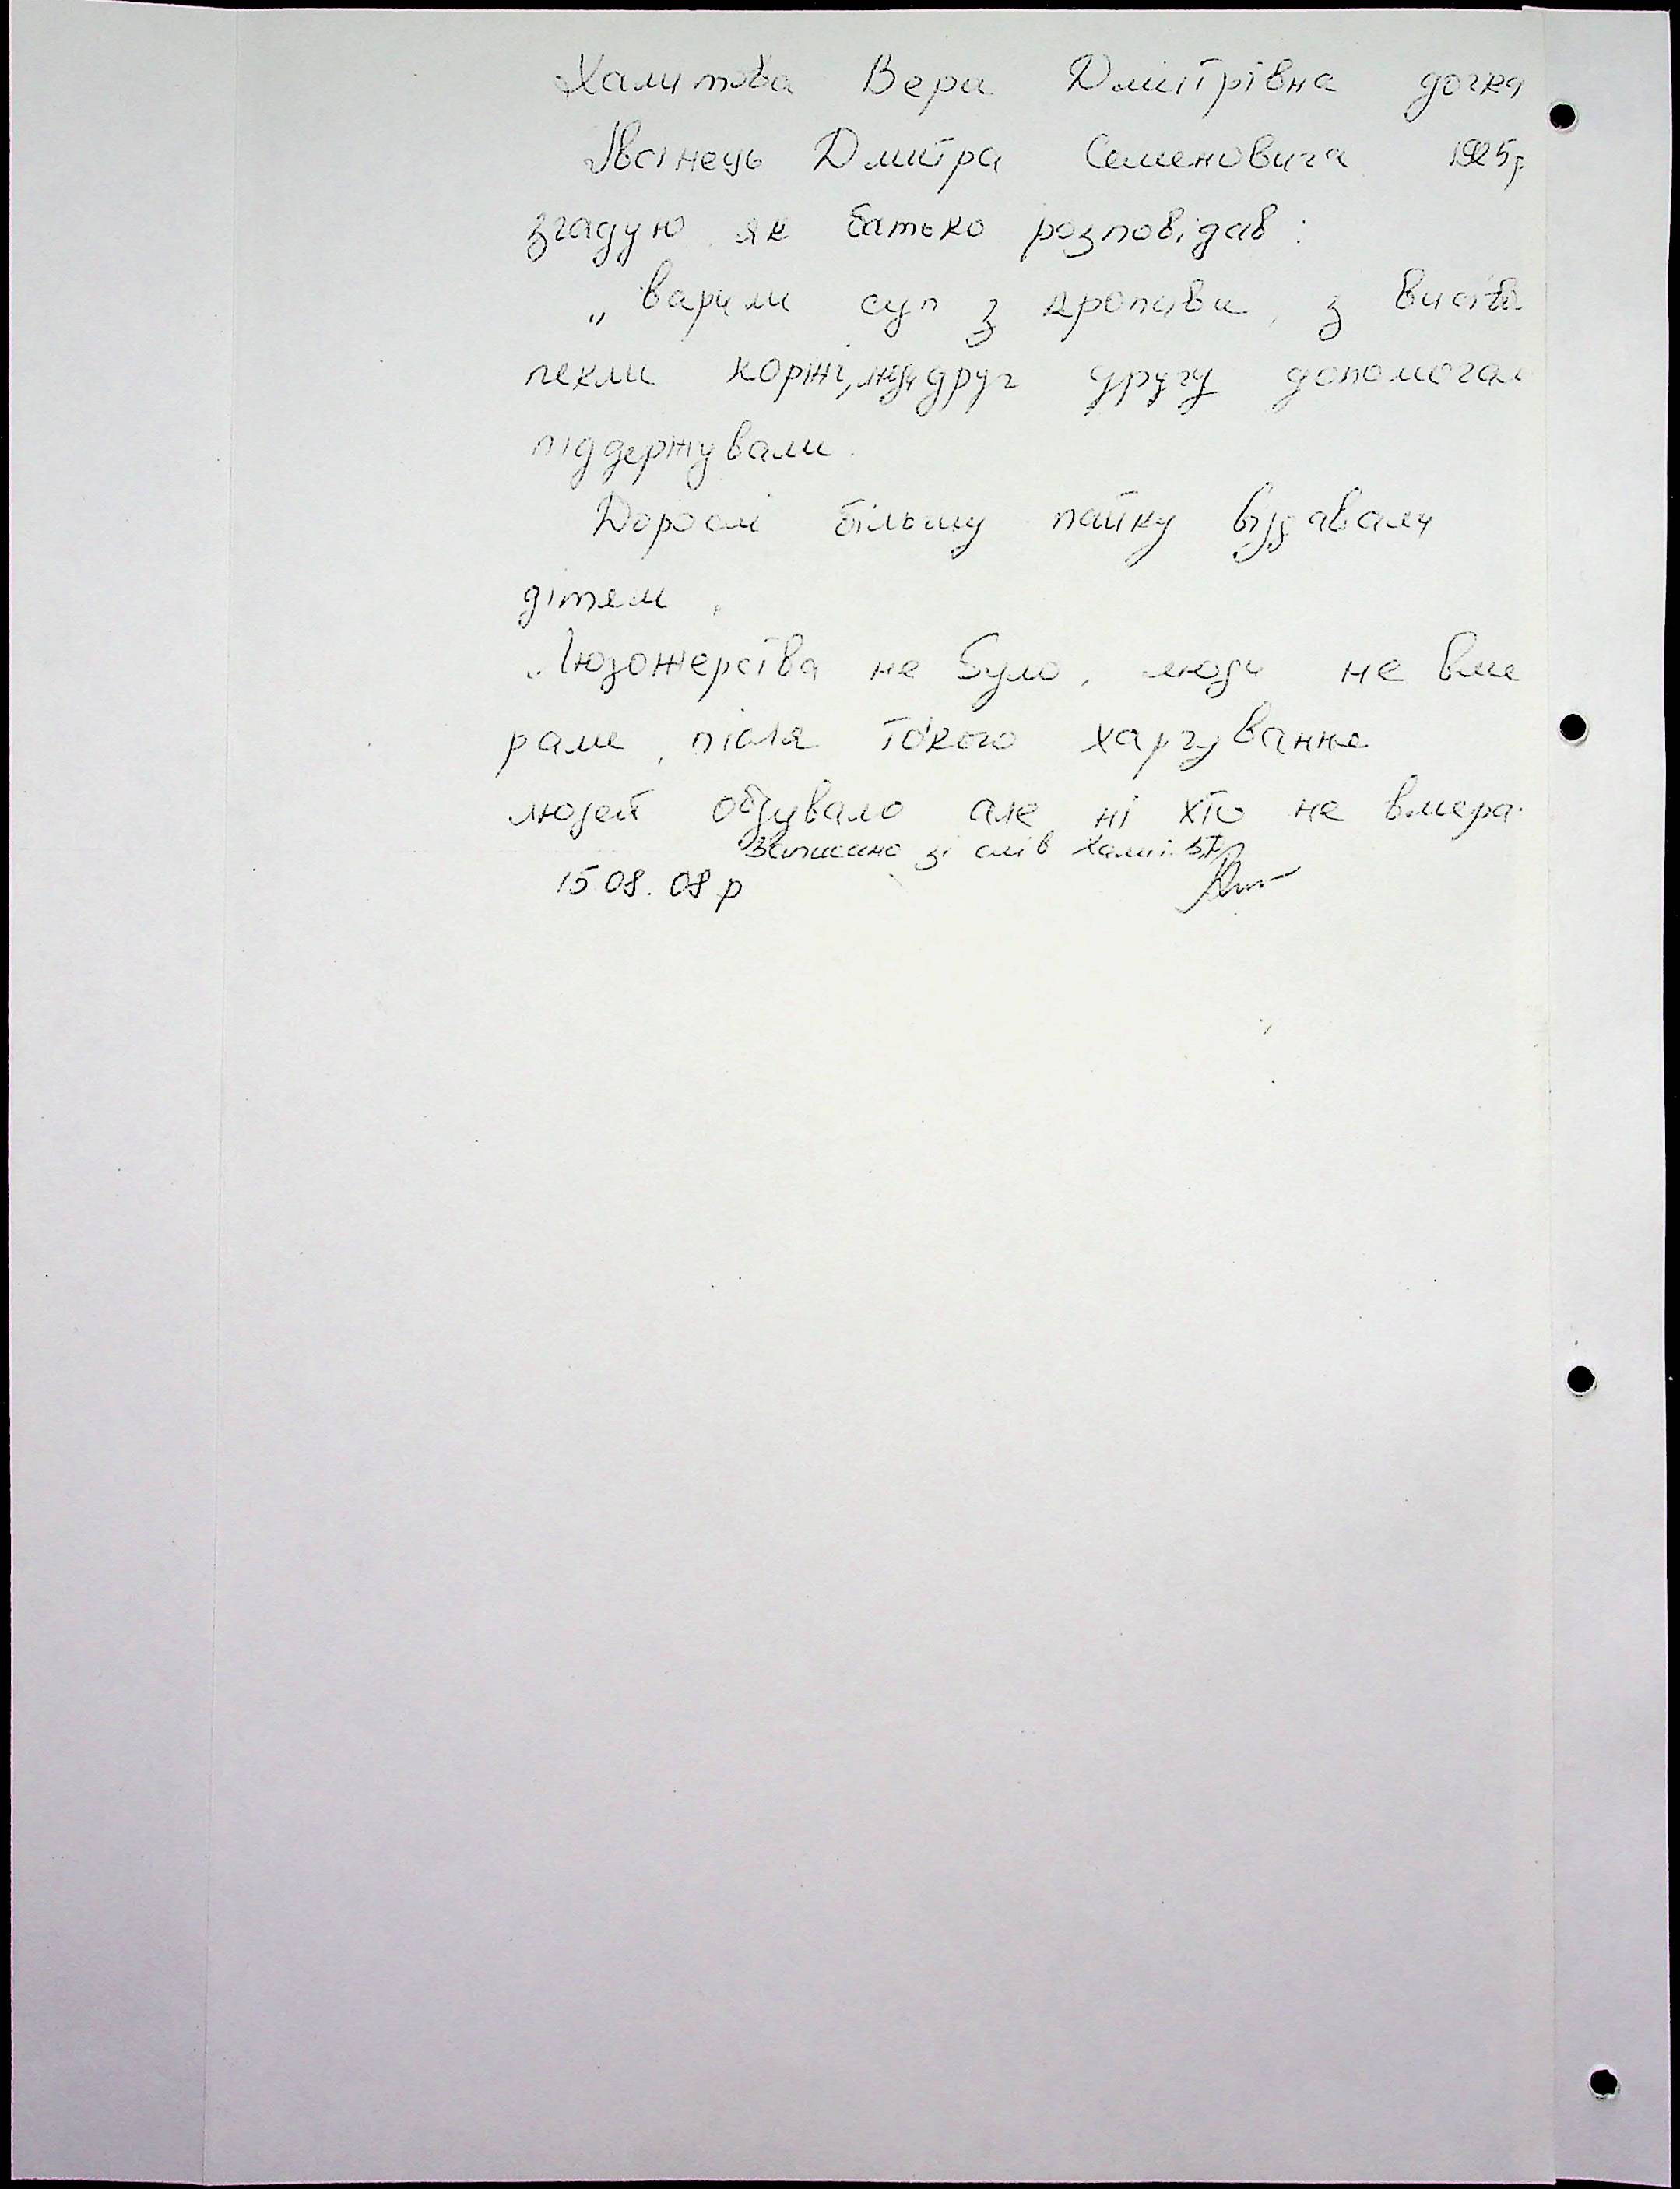 Халитова Вера Дмитрівна дочка
Іванець Дмитра Семеновича 1925р
згадую як батько розповідав:
„варили суп з кропиви, з висіво
пекли коржі, люди друг другу допомогал
піддержували.
Дорослі більшу пайку віддавали
дітям.
„Людожерства не було, люди не вми
рали, після такого харчування
людей обдувало але ні хто не вмера
Записано зі слів
15 08. 08 р